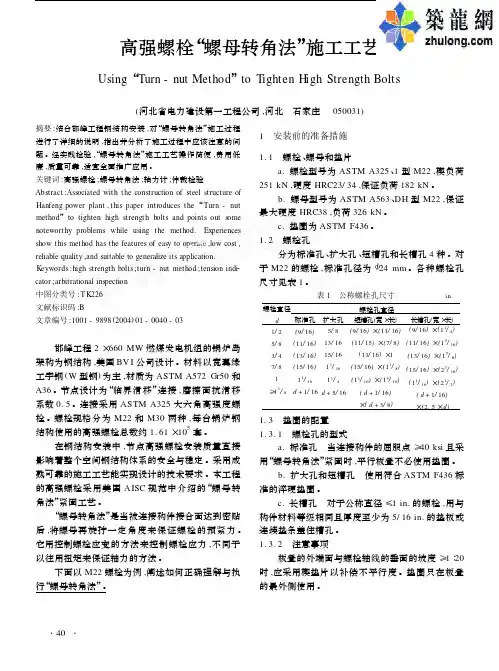 築龍網
zhulong.com
高强螺栓“螺母转角法”施工工艺
Using “Turn - nut Method” to Tighten High Strength Bolts
(河北省电力建设第一工程公司,河北 石家庄 050031)
摘要:结合邯峰工程钢结构安装,对“螺母转角法”施工过程
进行了详细的说明,指出并分析了施工过程中应该注意的问
题。经实践检验,“螺母转角法”施工工艺操作简便,费用低
廉,质量可靠,适宜全面推广应用。
关键词:高强螺栓;螺母转角法;轴力计;仲裁检验
Abstract:Associated with the construction of steel structure of
Hanfeng power plant ,this paper introduces the “Turn - nut
method” to tighten high strength bolts and points out some
noteworthy problems while using the method. Experiences
show this method has the features of easy to operate,low cost ,
reliable quality ,and suitable to generalize its application.
Keywords:high strength bolts;turn - nut method;tension indi-
cator;arbitrational inspection
中图分类号:TK226
文献标识码:B
文章编号:1001 - 9898(2004)01 - 0040 - 03
邯峰工程 2×660 MW 燃煤发电机组的锅炉岛
架构为钢结构,美国BVI公司设计。材料以宽翼缘
工字钢(W型钢)为主,材质为 ASTM A572 Gr50 和
A36。节点设计为“临界滑移”连接,磨擦面抗滑移
系数 0.5。连接采用 ASTM A325 大六角高强度螺
栓。螺栓规格分为 M22 和 M30 两种,每台锅炉钢
结构使用的高强螺栓总数约 1.61×10⁵ 套。
在钢结构安装中,节点高强螺栓安装质量直接
影响着整个空间钢结构体系的安全与稳定。采用成
熟可靠的施工工艺能实现设计的技术要求。本工程
的高强螺栓采用美国 AISC 规范中介绍的“螺母转
角法”紧固工艺。
“螺母转角法”是当被连接构件接合面达到密贴
后,将螺母再旋拧一定角度来保证螺栓的预紧力。
它用控制螺栓应变的方法来控制螺栓应力,不同于
以往用扭矩来保证轴力的方法。
下面以 M22 螺栓为例,阐述如何正确理解与执
行“螺母转角法”。
1 安装前的准备措施
1.1 螺栓、螺母和垫片
a. 螺栓型号为 ASTM A325、1 型 M22,楔负荷
251 kN,硬度 HRC23/34,保证负荷 182 kN。
b. 螺母型号为 ASTM A563、DH 型 M22,保证
最大硬度 HRC38,负荷 326 kN。
c. 垫圈为 ASTM F436。
1.2 螺栓孔
分为标准孔、扩大孔、短槽孔和长槽孔 4 种。对
于 M22 的螺栓,标准孔径为 φ24 mm。各种螺栓孔
尺寸见表 1。
表1 公称螺栓孔尺寸 in.
螺栓直径 螺栓孔直径
d 标准孔 扩大孔 短槽孔(宽×长) 长槽孔(宽×长)
1/2 (9/16) 5/8 (9/16)×(11/16) (9/16)×(1¹/₄)
5/8 (11/16) 13/16 (11/15)×(7/8) (11/16)×(1⁹/₁₆)
3/4 (13/16) 15/16 (13/16)×1 (13/16)×(1⁷/₈)
7/8 (15/16) 1¹/₁₆ (15/16)×(1¹/₈) (15/16)×(2³/₁₆)
1 1¹/₁₆ 1¹/₄ (1¹/₁₆)×(1⁵/₁₆) (1¹/₁₆)×(2¹/₂)
≥1¹/₈ d+1/16 d+5/16 (d+1/16) (d+1/16)
×(d+3/8) ×(2.5×d)
1.3 垫圈的配置
1.3.1 螺栓孔的型式
a. 标准孔 当连接构件的屈服点≥40 ksi 且采
用“螺母转角法”紧固时,平行板叠不必使用垫圈。
b. 扩大孔和短槽孔 使用符合 ASTM F436 标
准的淬硬垫圈。
c. 长槽孔 对于公称直径≤1 in. 的螺栓,用与
构件材料等级相同且厚度至少为 5/16 in. 的垫板或
连续条盖住槽孔。
1.3.2 注意事项
板叠的外端面与螺栓轴线的垂面的坡度≥1:20
时,应采用楔垫片以补偿不平行度。垫圈只在板叠
的最外侧使用。
· 40 ·